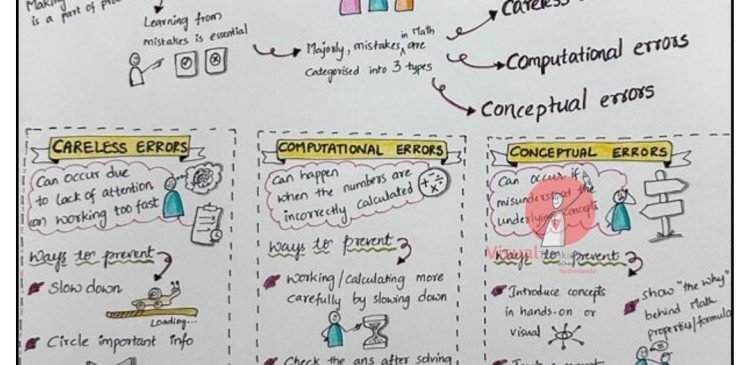 Making
is a part of
Learning from
mistakes is essential
Majorly, mistakes in Math are
categorised into 3 types
Careless
Computational errors
Conceptual errors
CARELESS ERRORS
Can occur due
to lack of attention
on working too fast
Ways to prevent
Slow down
Loading...
Circle important info
COMPUTATIONAL ERRORS
Can happen
when the numbers are
incorrectly calculated
Ways to prevent
Working/calculating more
carefully by slowing down
Check the ans after solving
CONCEPTUAL ERRORS
Can occur if
misunderstood the
underlying concepts
Ways to prevent
Introduce concepts
in hands-on or
visual
show "the why"
behind Math
properties/formula
Visual
Netherlands